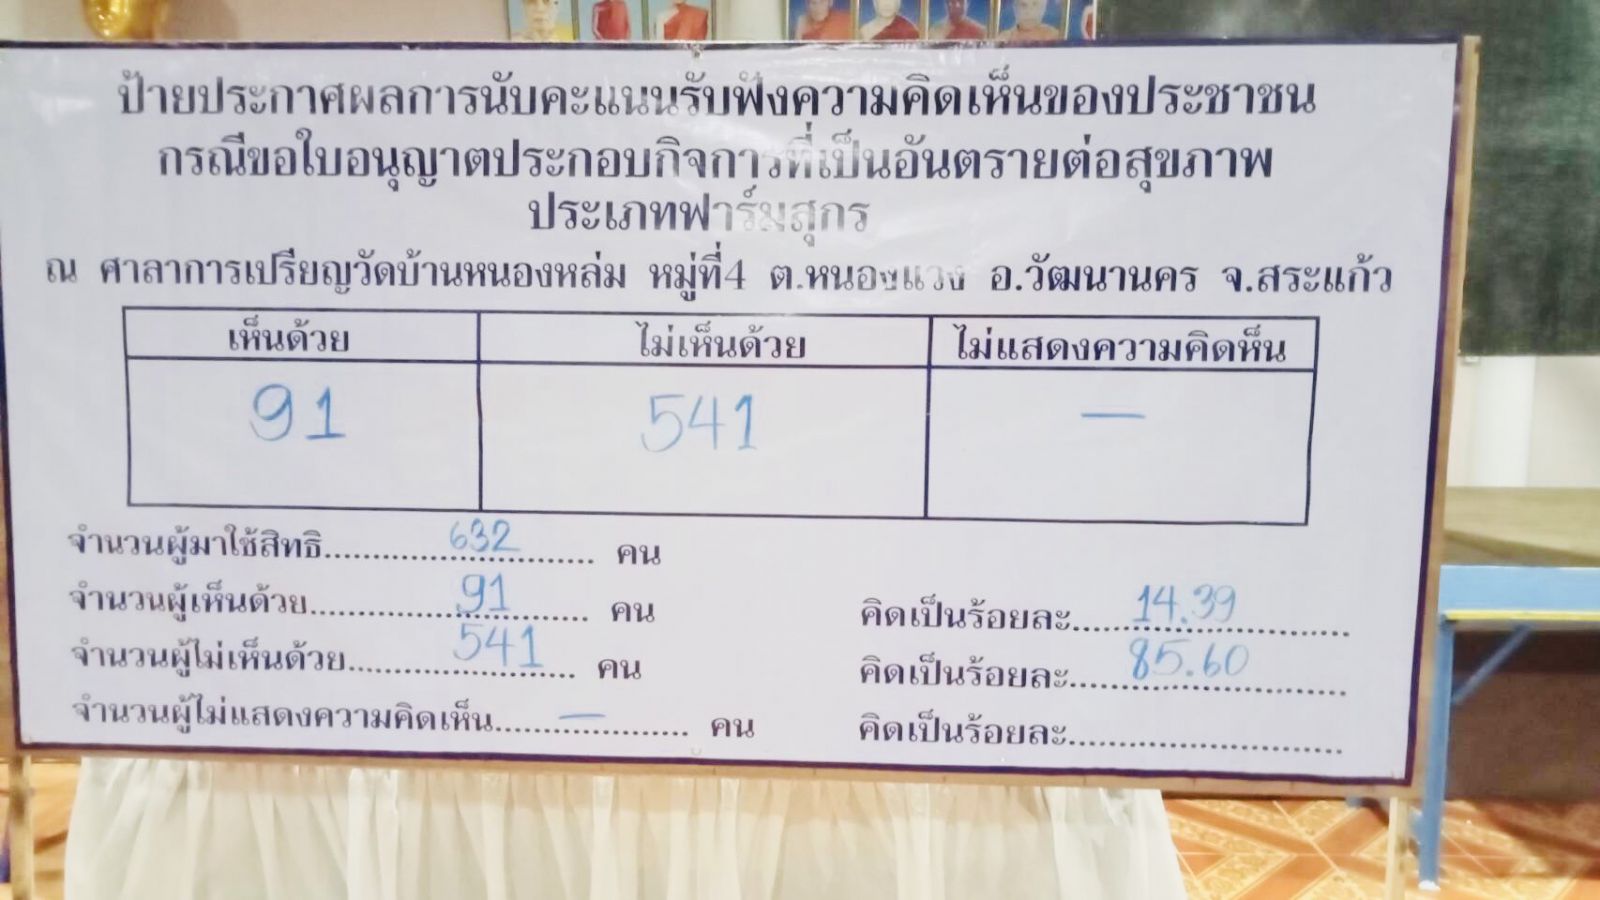 ป้ายประกาศผลการนับคะแนนรับฟังความคิดเห็นของประชาชน
กรณีขอใบอนุญาตประกอบกิจการที่เป็นอันตรายต่อสุขภาพ
ประเภทฟาร์มสุกร
ณ ศาลาการเปรียญวัดบ้านหนองหล่ม หมู่ที่4 ต.หนองแวง อ.วัฒนานคร จ.สระแก้ว
เห็นด้วย ไม่เห็นด้วย ไม่แสดงความคิดห็น
91 541 —
จำนวนผู้มาใช้สิทธิ......632...... คน
จำนวนผู้เห็นด้วย......91...... คน คิดเป็นร้อยละ......14.39......
จำนวนผู้ไม่เห็นด้วย......541...... คน คิดเป็นร้อยละ......85.60......
จำนวนผู้ไม่แสดงความคิดเห็น......—...... คน คิดเป็นร้อยละ............